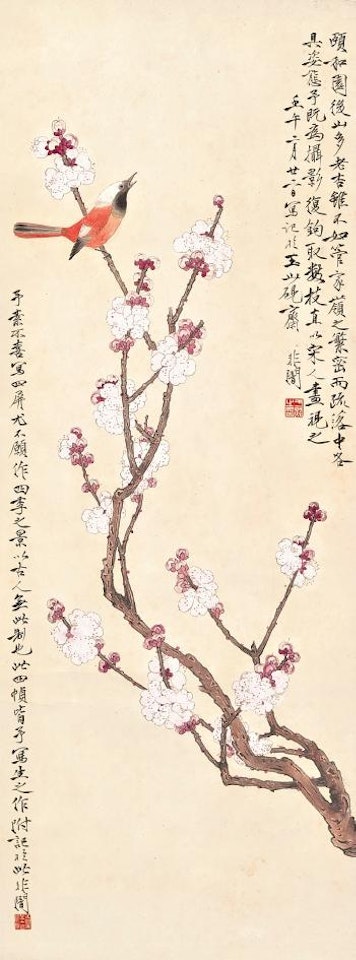 頤和園後山多老杏雖不如管家嶺之繁密而疏落中各
具姿態予既為攝影復鉤取數枝直以宋人畫視之
壬午二月廿六日寫記於玉山硯齋 非闇
予素不喜寫四屏尤不願作四季之景以古人無此制也此四幀皆予寫生之作附記於此非闇